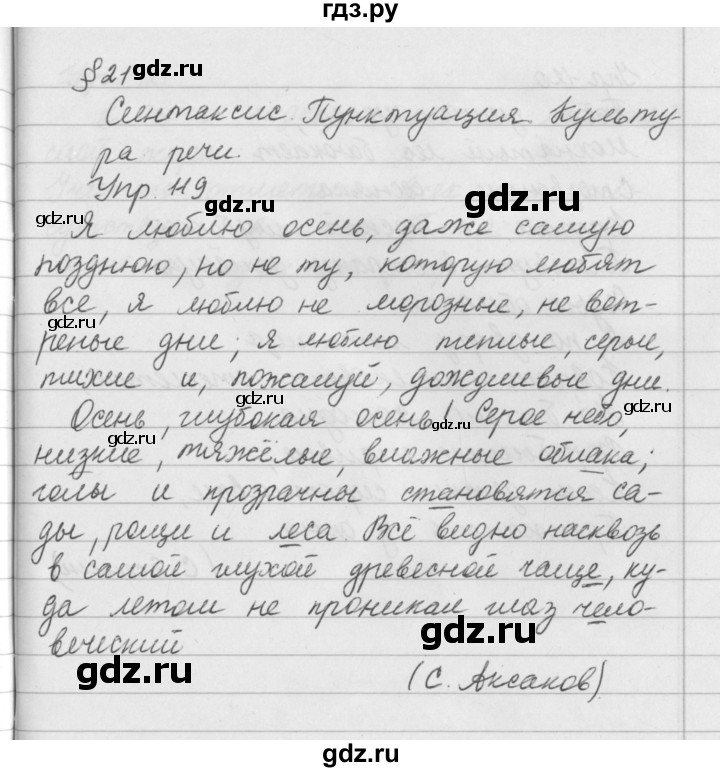 гдз.ру
§21 gdz.ru
Синтаксис. Пунктуация. Культу-
ра речи.
Упр. 119 gdz.ru
gdz.ru
Я люблю осень, даже самую
позднюю, но не ту, которую любят
все, я люблю не морозные, не вет-
gdz.ru
реные дни; я люблю теплые, серые,
тихие и, пожалуй, дождливые дни.
gdz.ru
Осень, глубокая осень! Серое небо,
gdz.ru gdz.ru
низкие, тяжёлые, влажные облака;
голы и прозрачны становятся са-
ды, рощи и леса Всё видно насквозь
в самой глухой древесной чаще, ку-
да летом не проникал глаз чело-
gdz.ru
веческий
gdz.ru
(С. Аксаков)
gdz.ru